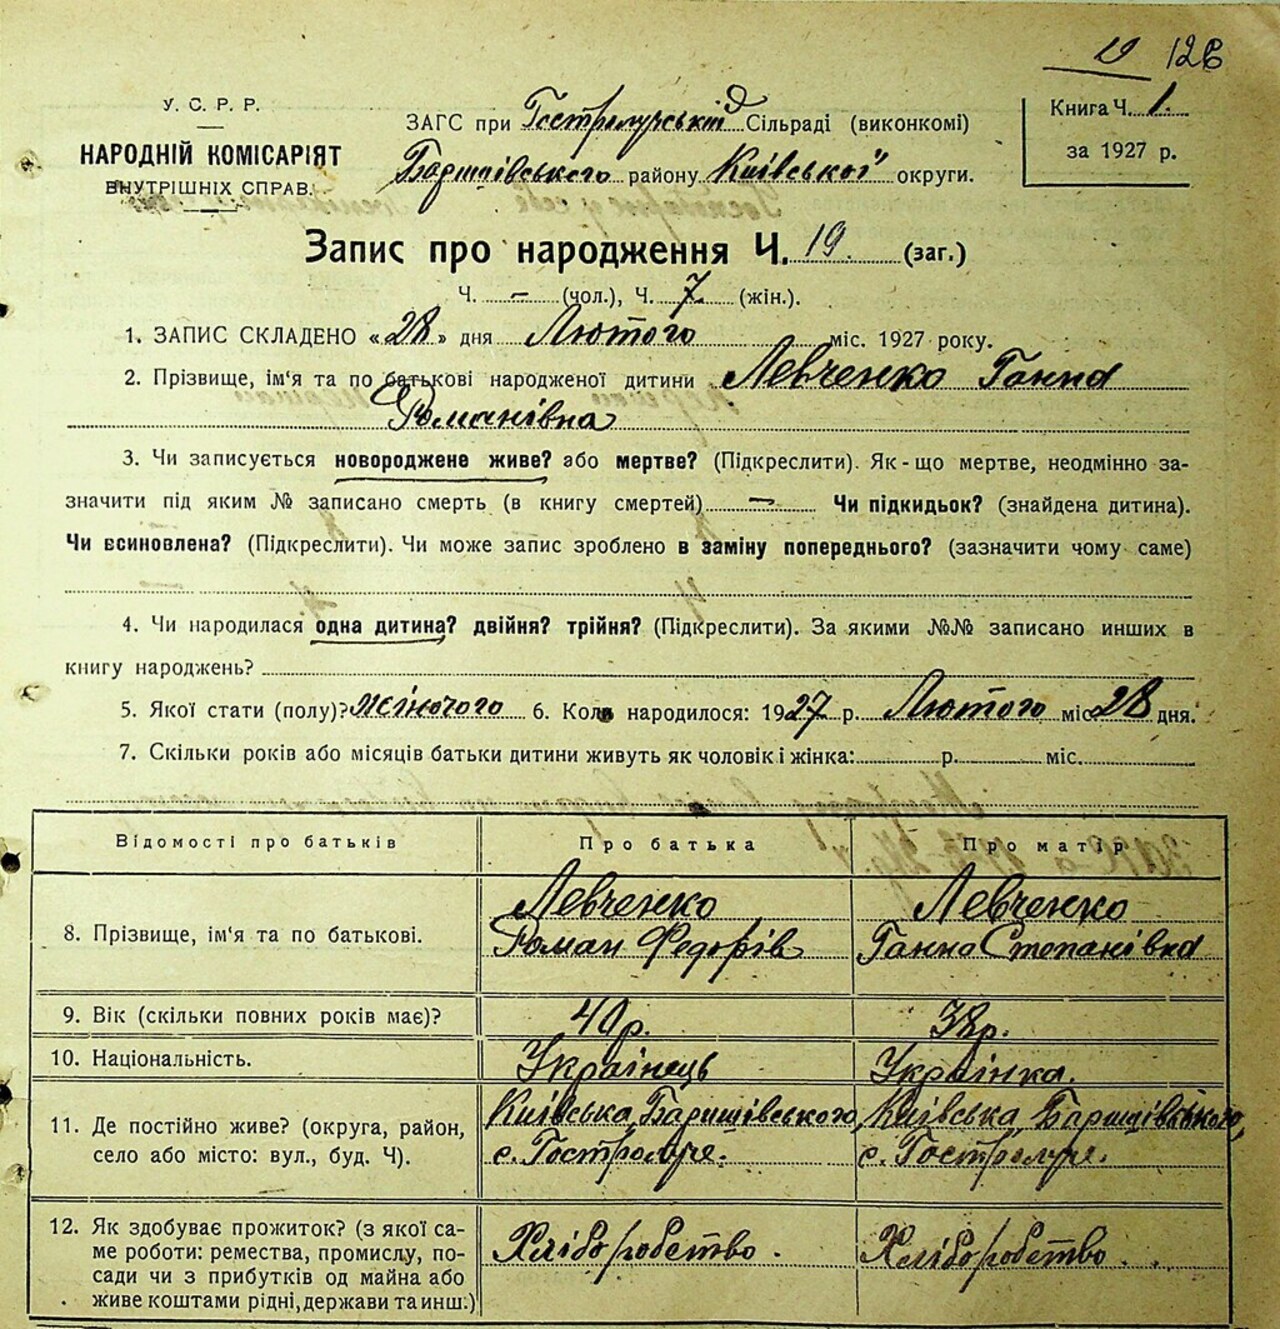 12
У. С. Р. Р.
НАРОДНІЙ КОМІСАРІЯТ
ВНУТРІШНІХ СПРАВ.
ЗАГС при Гостролуцькій Сільраді (виконкомі)
Баришівського району Київської округи.
Книга Ч. 1.
за 1927 р.
Запис про народження Ч. 19. (заг.)
Ч. – (чол.), Ч. 7. (жін.).
1. ЗАПИС СКЛАДЕНО «28» дня Лютого міс. 1927 року.
2. Прізвище, ім'я та по батькові народженої дитини Левченко Ганна
Романівна
3. Чи записується новороджене живе? або мертве? (Підкреслити). Як-що мертве, неодмінно за-
значити під яким № записано смерть (в книгу смертей) – Чи підкидьок? (знайдена дитина).
Чи всиновлена? (Підкреслити). Чи може запис зроблено в заміну попереднього? (зазначити чому саме)
4. Чи народилася одна дитина? двійня? трійня? (Підкреслити). За якими №№ записано инших в
книгу народжень?
5. Якої стати (полу)? жіночого 6. Коли народилося: 1927 р. Лютого міс 28 дня.
7. Скільки років або місяців батьки дитини живуть як чоловік і жінка: р. міс.
Відомості про батьків Про батька Про матір
8. Прізвище, ім'я та по батькові. Левченко Роман Федорів Левченко Ганна Степанівна
9. Вік (скільки повних років має)? 40 р. 38 р.
10. Національність. Українець Українка.
11. Де постійно живе? (округа, район, село або місто: вул., буд. Ч). Київська, Баришівського с. Гостролуче. Київська, Баришівського, с. Гостролуче.
12. Як здобуває прожиток? (з якої са-
ме роботи: ремества, промислу, по-
сади чи з прибутків од майна або
живе коштами рідні, держави та инш.) Хліборобство. Хліборобство.